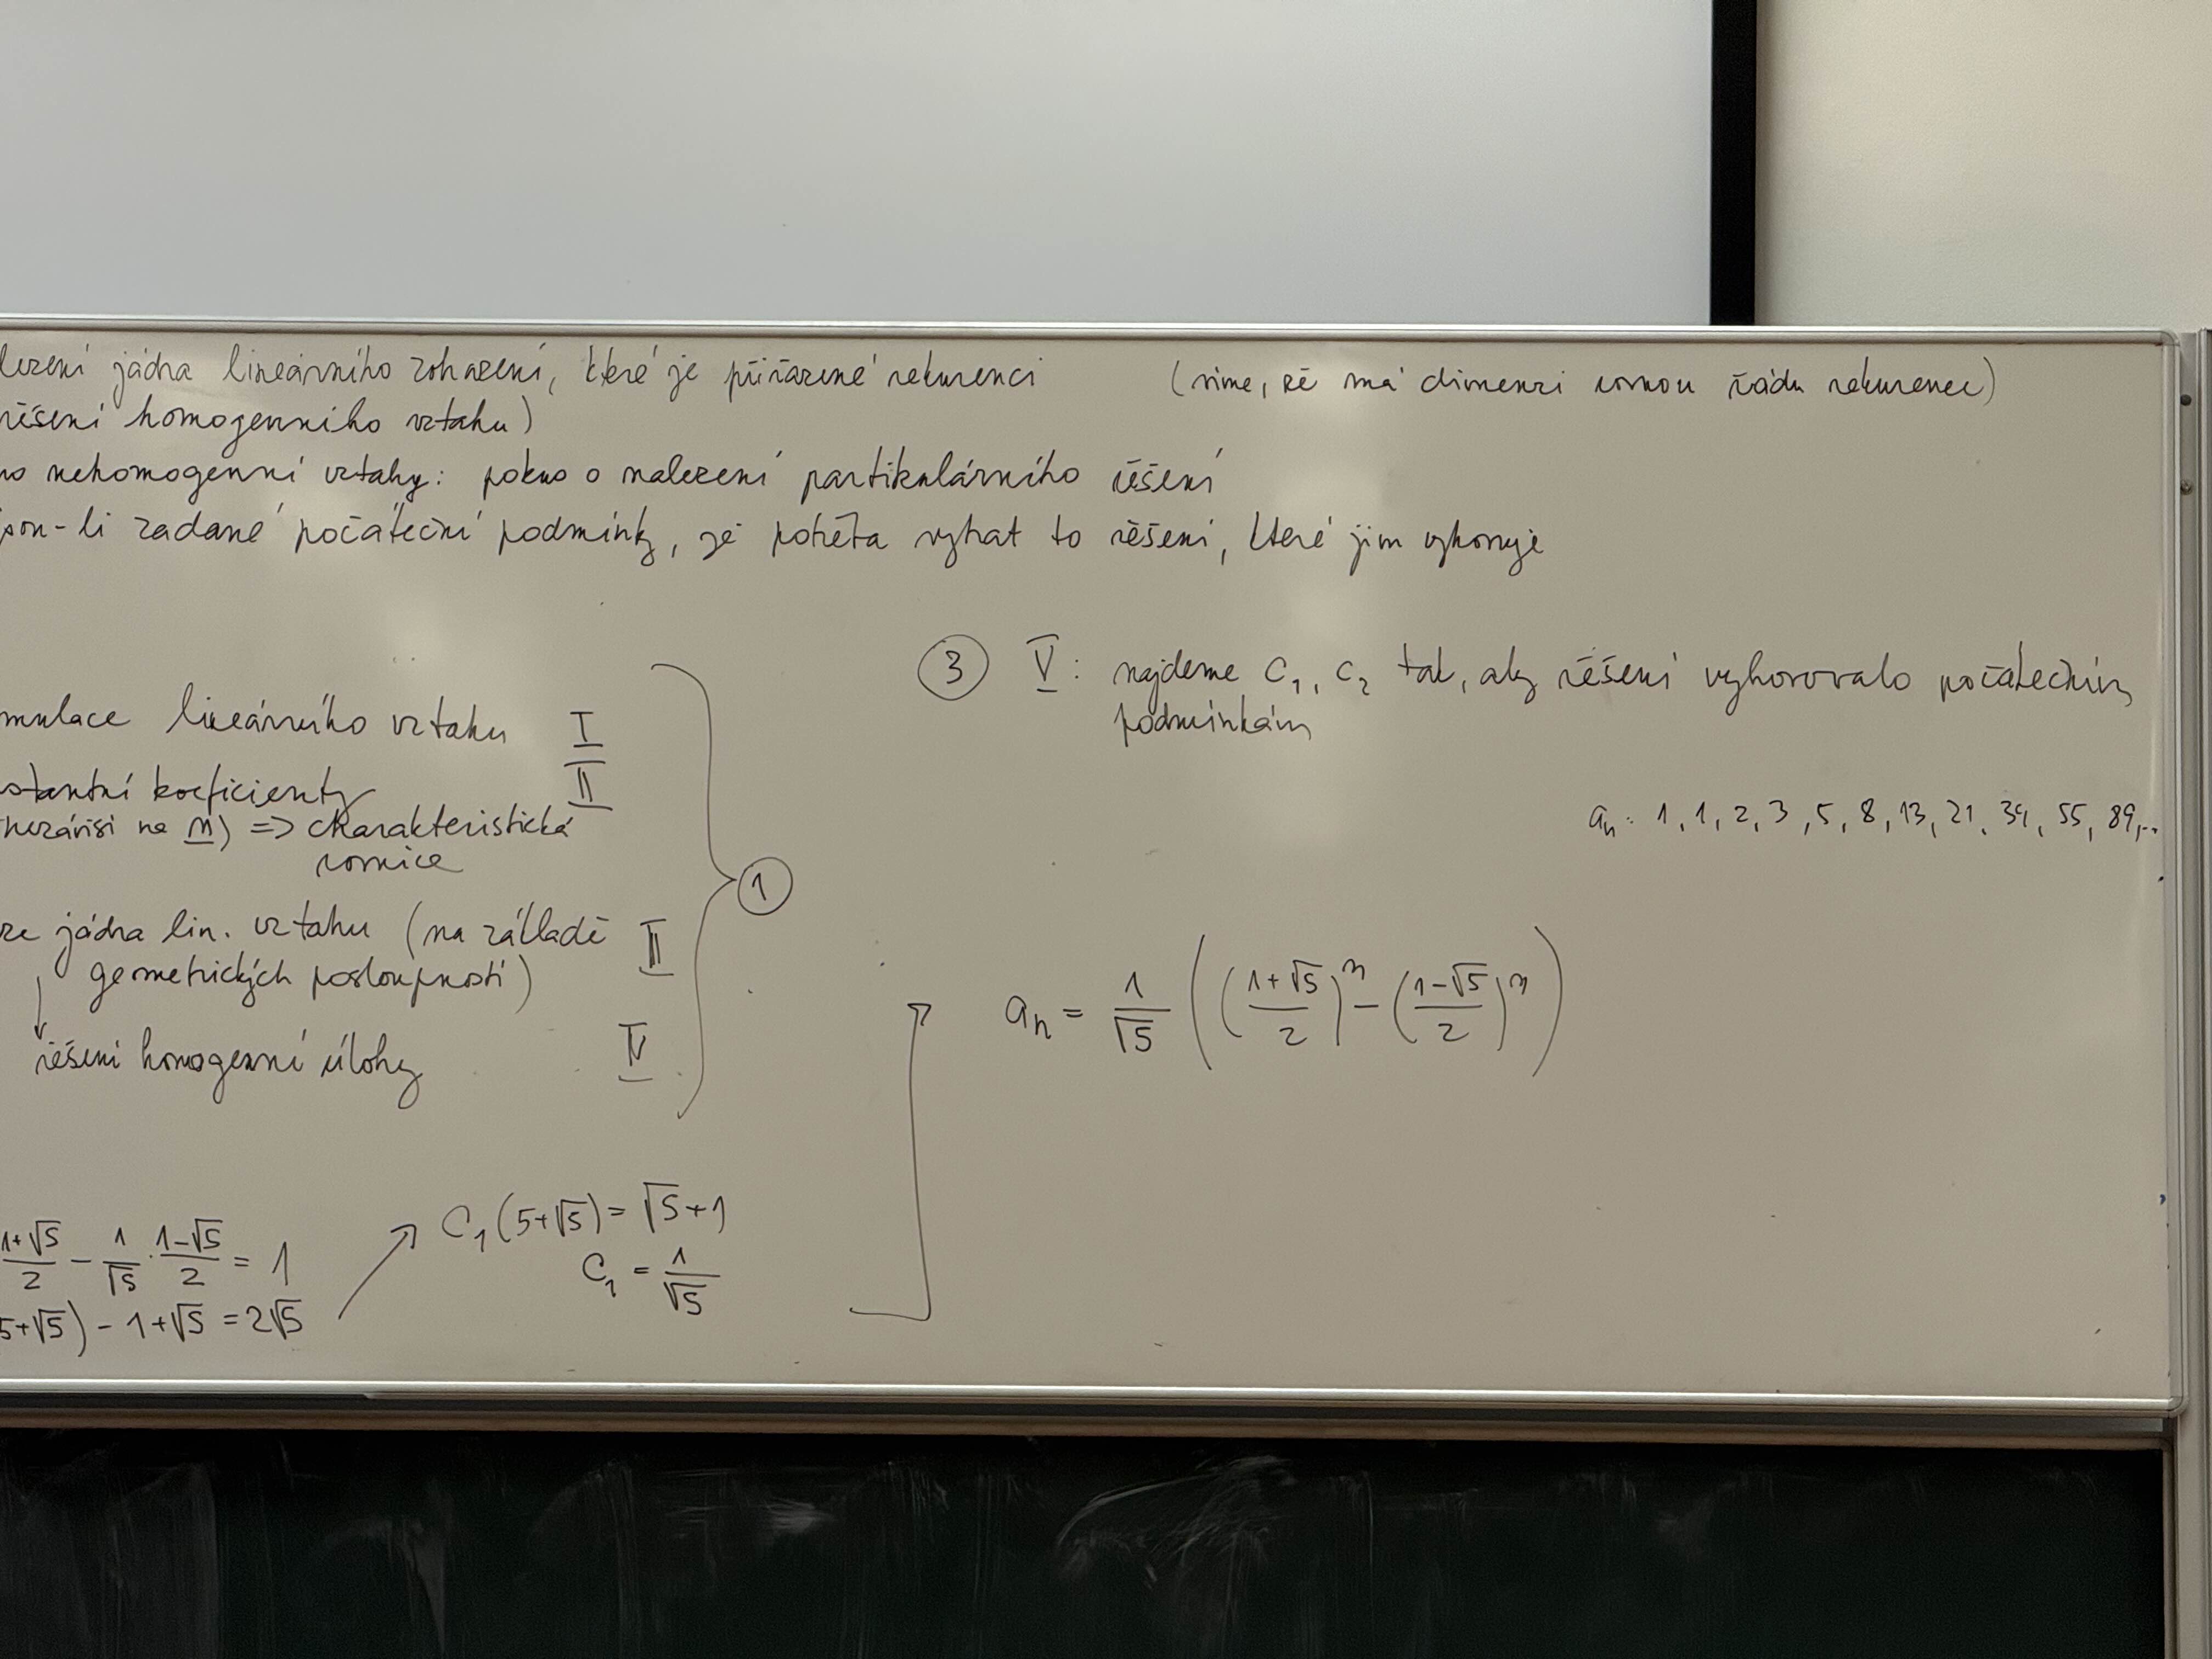 lezení jádra lineárního zobrazení, které je přiřazené rekurenci (víme, že má dimenzi rovnou řádu rekurence)
řešení homogenního vztahu)
ro nehomogenní vztahy: pokus o nalezení partikulárního řešení
jsou-li zadané počáteční podmínky, je potřeba vybrat to řešení, které jim vyhovuje
mulace lineárního vztahu I
stantní koeficienty II
nezávisí na n) => charakteristická
rovnice
①
ze jádra lin. vztahu (na základě III
geometrických posloupností)
řešení homogenní úlohy IV
1+√5/2 - 1/√5 · 1-√5/2 = 1
5+√5) - 1+√5 = 2√5
C₁(5+√5) = √5+1
C₁ = 1/√5
③ V: najdeme C₁, C₂ tak, aby řešení vyhovovalo počátečním
podmínkám
aₙ: 1, 1, 2, 3, 5, 8, 13, 21, 34, 55, 89,..
aₙ = 1/√5 ( (1+√5/2)ⁿ - (1-√5/2)ⁿ )